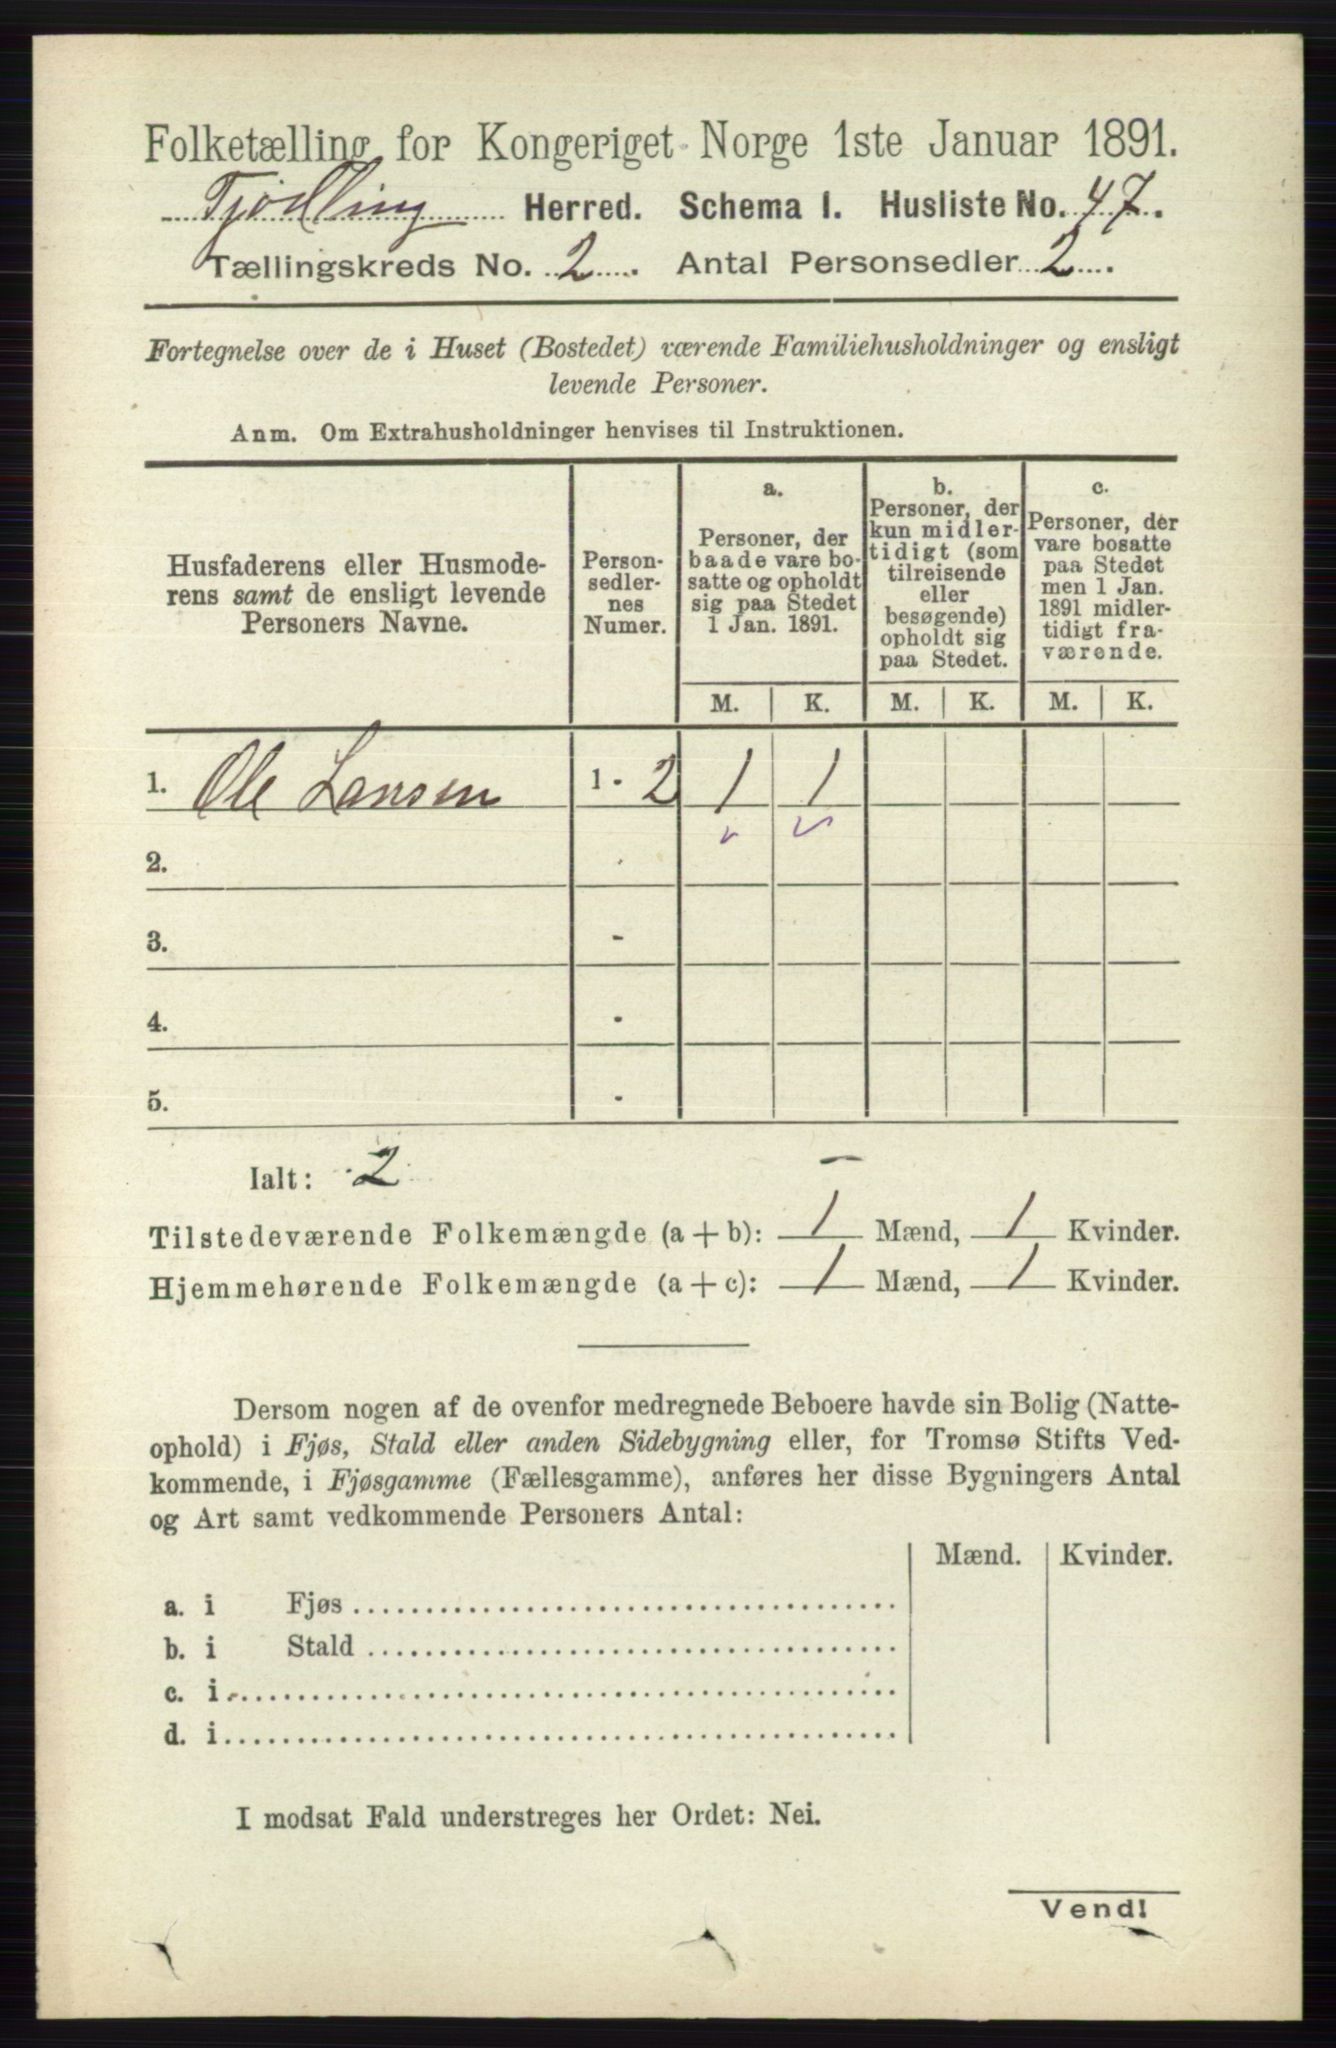 Folketælling for Kongeriget Norge 1ste Januar 1891.
Tjödling Herred. Schema I. Husliste No. 47.
Tællingskreds No. 2. Antal Personsedler 2.
Fortegnelse over de i Huset (Bostedet) værende Familiehusholdninger og ensligt
levende Personer.
Anm. Om Extrahusholdninger henvises til Instruktionen.
Husfaderens eller Husmode-
rens samt de ensligt levende
Personers Navne.
Person-
sedler-
nes
Numer.
a.
Personer, der
baade vare bo-
satte og opholdt
sig paa Stedet
1 Jan. 1891.
b.
Personer, der
kun midler-
tidigt (som
tilreisende
eller
besøgende)
opholdt sig
paa Stedet.
c.
Personer, der
vare bosatte
paa Stedet
men 1 Jan.
1891 midler-
tidigt fra-
værende.
M. K. M. K. M. K.
1. Ole Larsen 1 - 2 1 1
2. -
3. -
4. -
5. -
Ialt: 2
Tilstedeværende Folkemængde (a + b): 1 Mænd, 1 Kvinder.
Hjemmehørende Folkemængde (a + c): 1 Mænd, 1 Kvinder.
Dersom nogen af de ovenfor medregnede Beboere havde sin Bolig (Natte-
ophold) i Fjøs, Stald eller anden Sidebygning eller, for Tromsø Stifts Ved-
kommende, i Fjøsgamme (Fællesgamme), anføres her disse Bygningers Antal
og Art samt vedkommende Personers Antal:
Mænd. Kvinder.
a. i Fjøs
b. i Stald
c. i
d. i
I modsat Fald understreges her Ordet: Nei.
Vend!